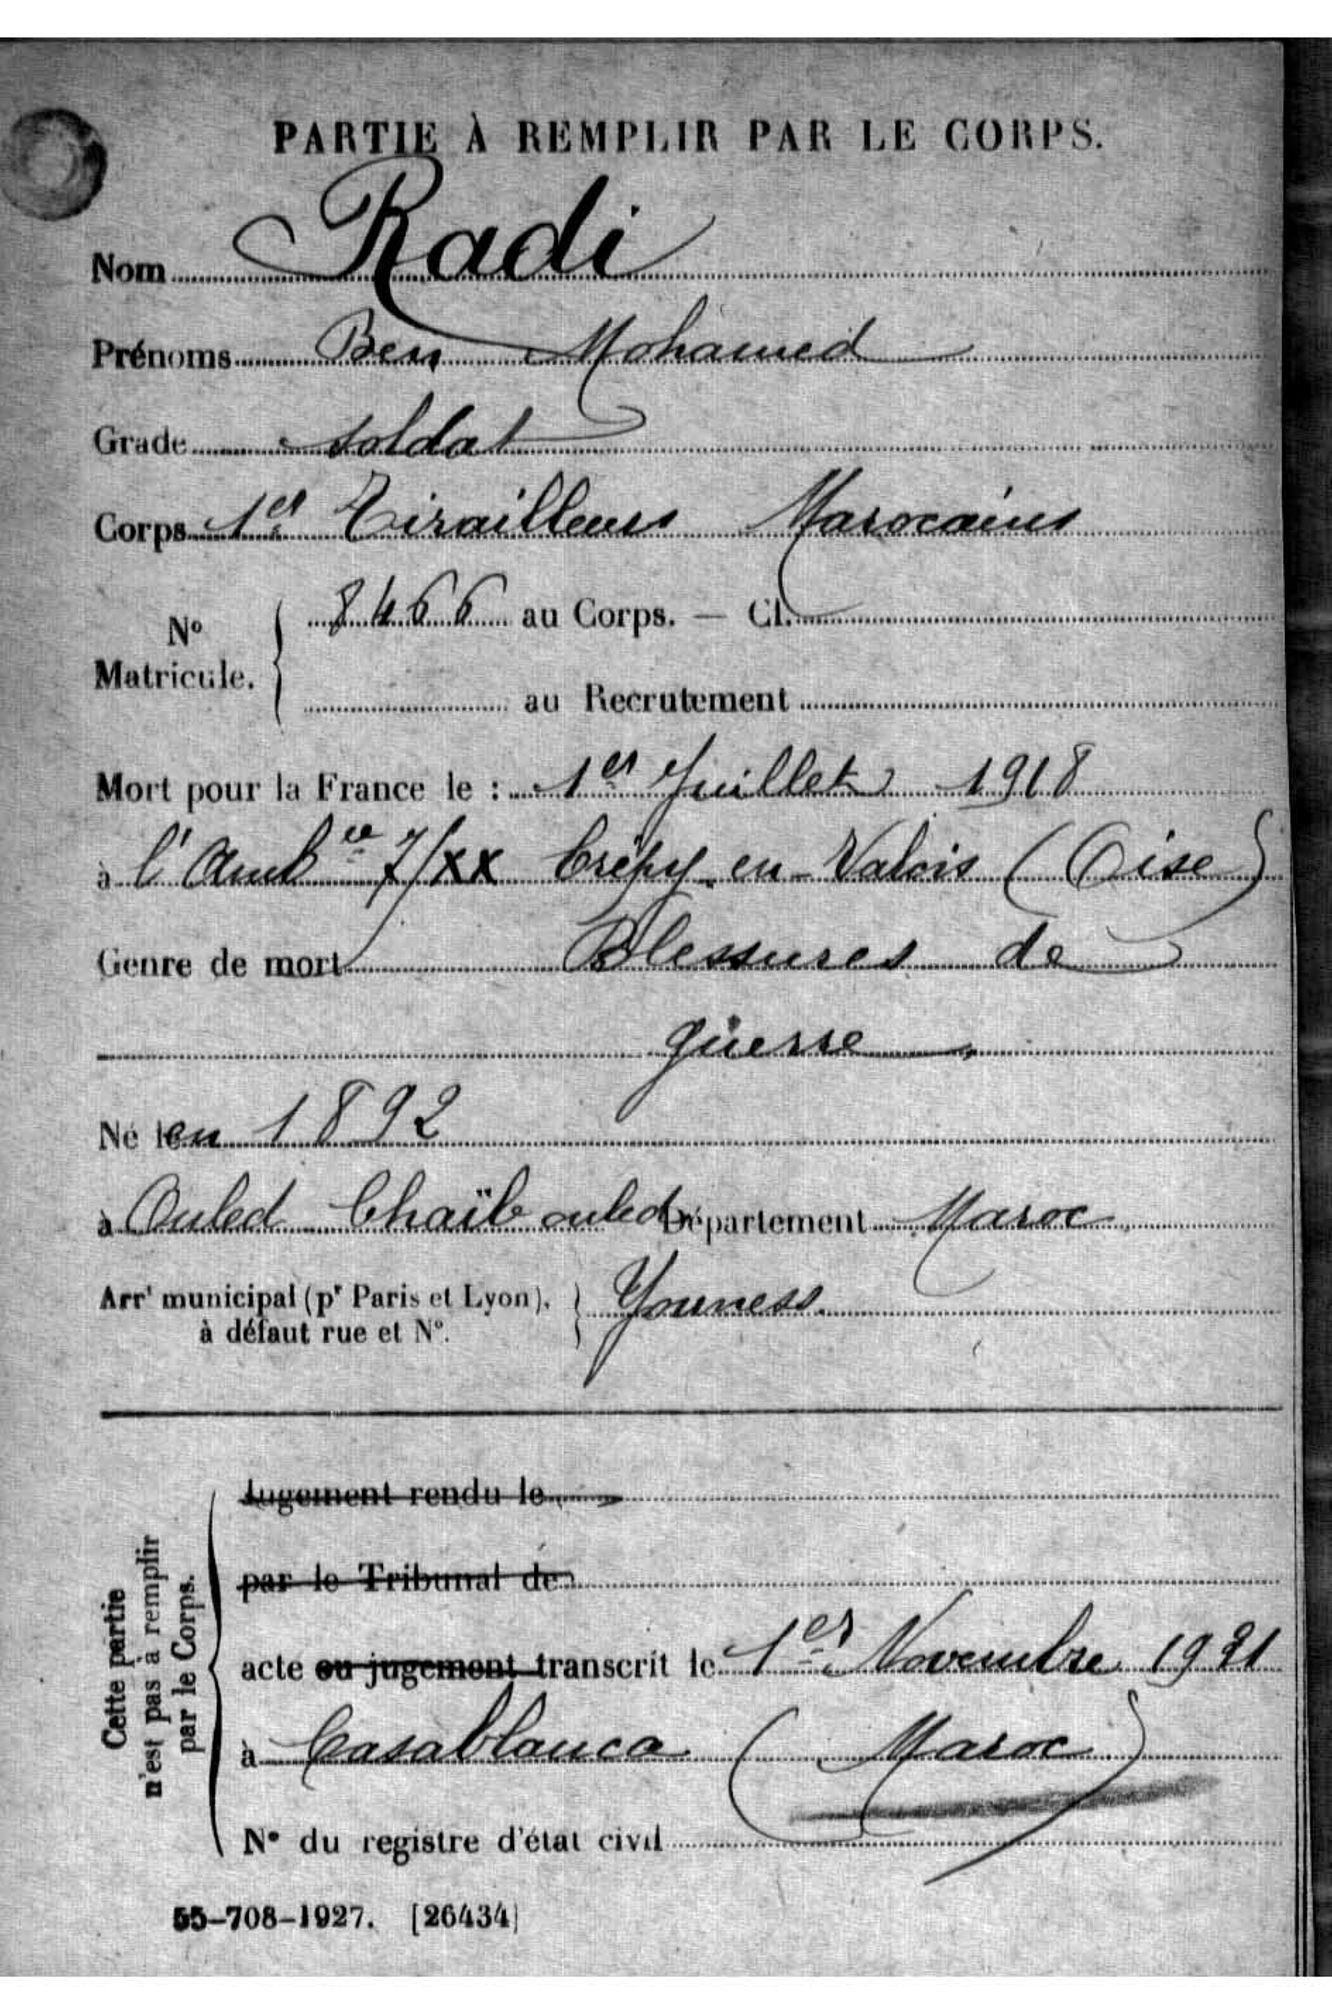 PARTIE À REMPLIR PAR LE CORPS.
Nom Radi
Prénoms Ben Mohamed
Grade soldat
Corps 1er Tirailleurs Marocains
N° Matricule. 8466 au Corps. — Cl.
au Recrutement
Mort pour la France le : 1er Juillet 1918
à l'Ambce 7/XX Crépy-en-Valois (Oise)
Genre de mort Blessures de
guerre
Né le en 1892
à Ouled Chaïb ouled Département Maroc
Arrt municipal (pr Paris et Lyon), à défaut rue et N°. Youness.
Cette partie n'est pas à remplir par le Corps.
Jugement rendu le
par le Tribunal de
acte ou jugement transcrit le 1er Novembre 1931
à Casablanca (Maroc)
N° du registre d'état civil
55-708-1927. [26434]